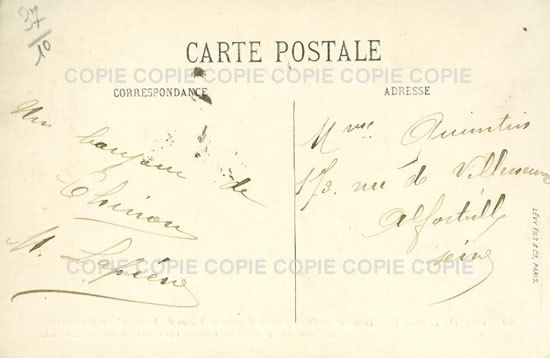 37/10
CARTE POSTALE
COPIE COPIE COPIE COPIE COPIE COPIE
CORRESPONDANCE
ADRESSE
Un bonjour de
Chinon
M.
Mme Quintin
173. rue de
Alfortville
Seine
LÉVY FILS & Cie, PARIS.
COPIE COPIE COPIE COPIE COPIE COPIE